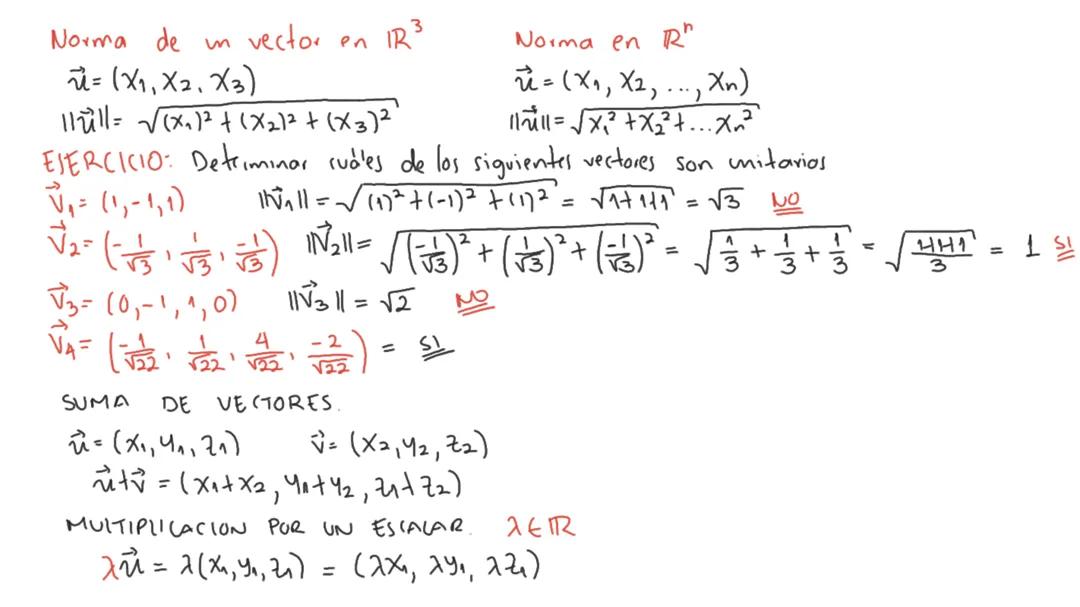 Norma de un vector en ℝ³ Norma en ℝⁿ
u⃗ = (x₁, x₂, x₃) u⃗ = (x₁, x₂, ..., xₙ)
||u⃗|| = √((x₁)² + (x₂)² + (x₃)²) ||u⃗|| = √(x₁² + x₂² + ... xₙ²)
EJERCICIO: Detrminar cuáles de los siguientes vectores son unitarios
v⃗₁ = (1, -1, 1) ||v⃗₁|| = √((1)² + (-1)² + (1)²) = √(1+1+1) = √3 NO
v⃗₂ = (-1/√3, 1/√3, -1/√3) ||v⃗₂|| = √((-1/√3)² + (1/√3)² + (-1/√3)²) = √(1/3 + 1/3 + 1/3) = √((1+1+1)/3) = 1 SI
v⃗₃ = (0, -1, 1, 0) ||v⃗₃|| = √2 NO
v⃗₄ = (-1/√22, 1/√22, 4/√22, -2/√22) = SI
SUMA DE VECTORES.
u⃗ = (x₁, y₁, z₁) v⃗ = (x₂, y₂, z₂)
u⃗+v⃗ = (x₁+x₂, y₁+y₂, z₁+z₂)
MULTIPLICACION POR UN ESCALAR. λ ∈ ℝ
λu⃗ = λ(x₁, y₁, z₁) = (λx₁, λy₁, λz₁)